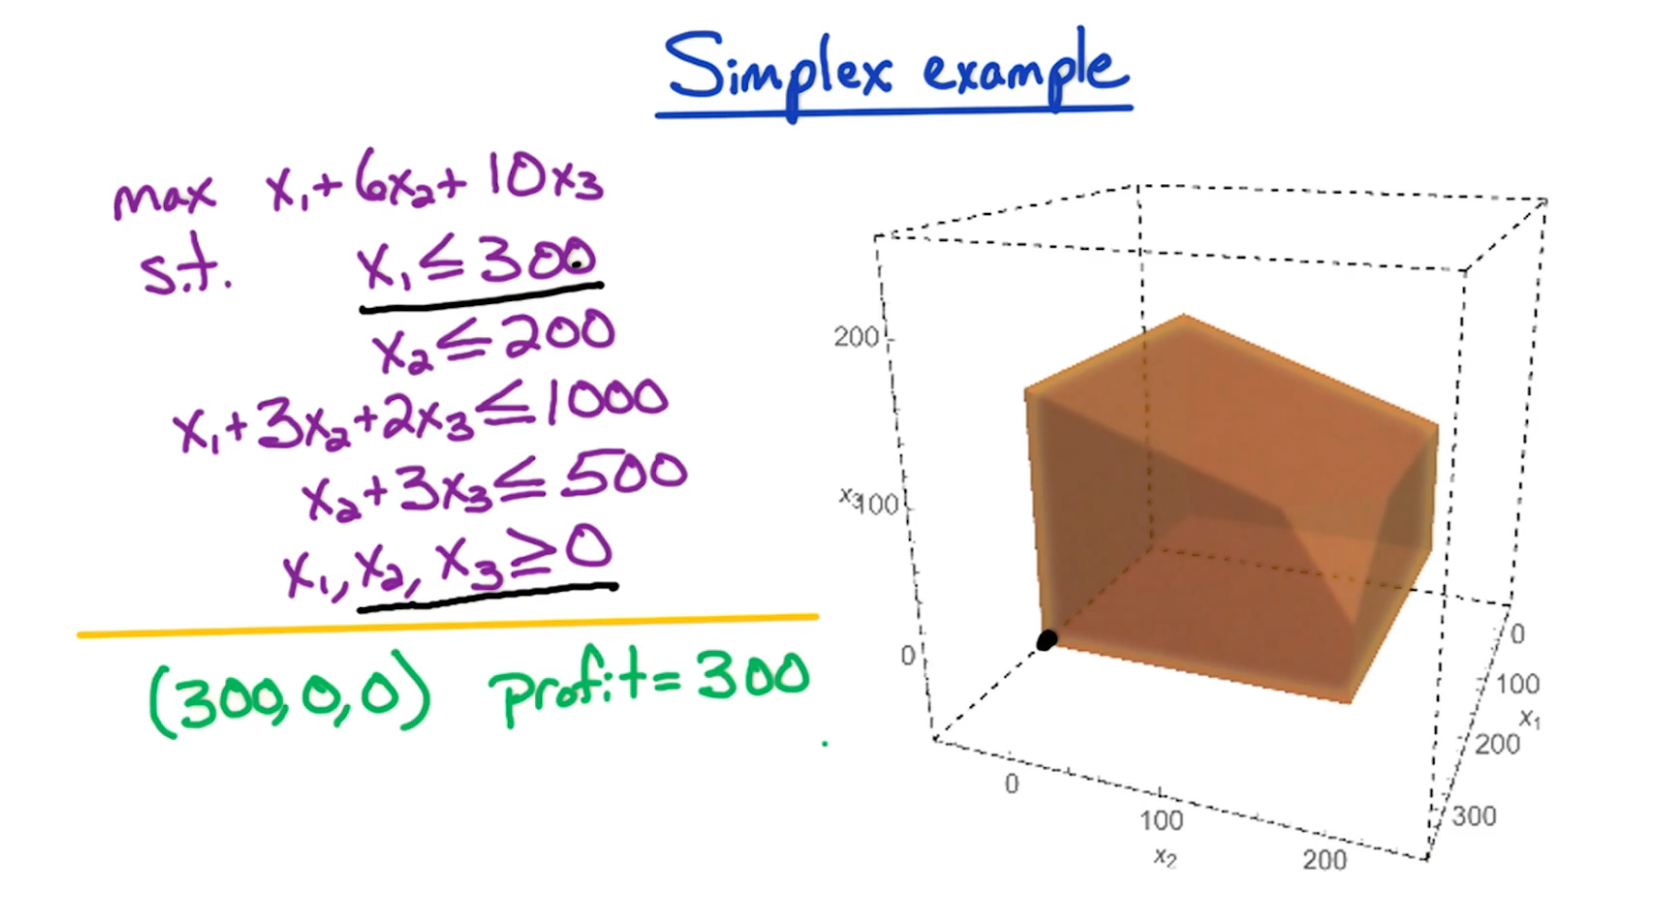 Simplex example
max x₁+6x₂+10x₃
s.t. x₁≤300
x₂≤200
x₁+3x₂+2x₃≤1000
x₂+3x₃≤500
x₁, x₂, x₃≥0
(300,0,0) profit=300
200
x₃
100
0
0
100
200
x₂
0
100
x₁
200
300